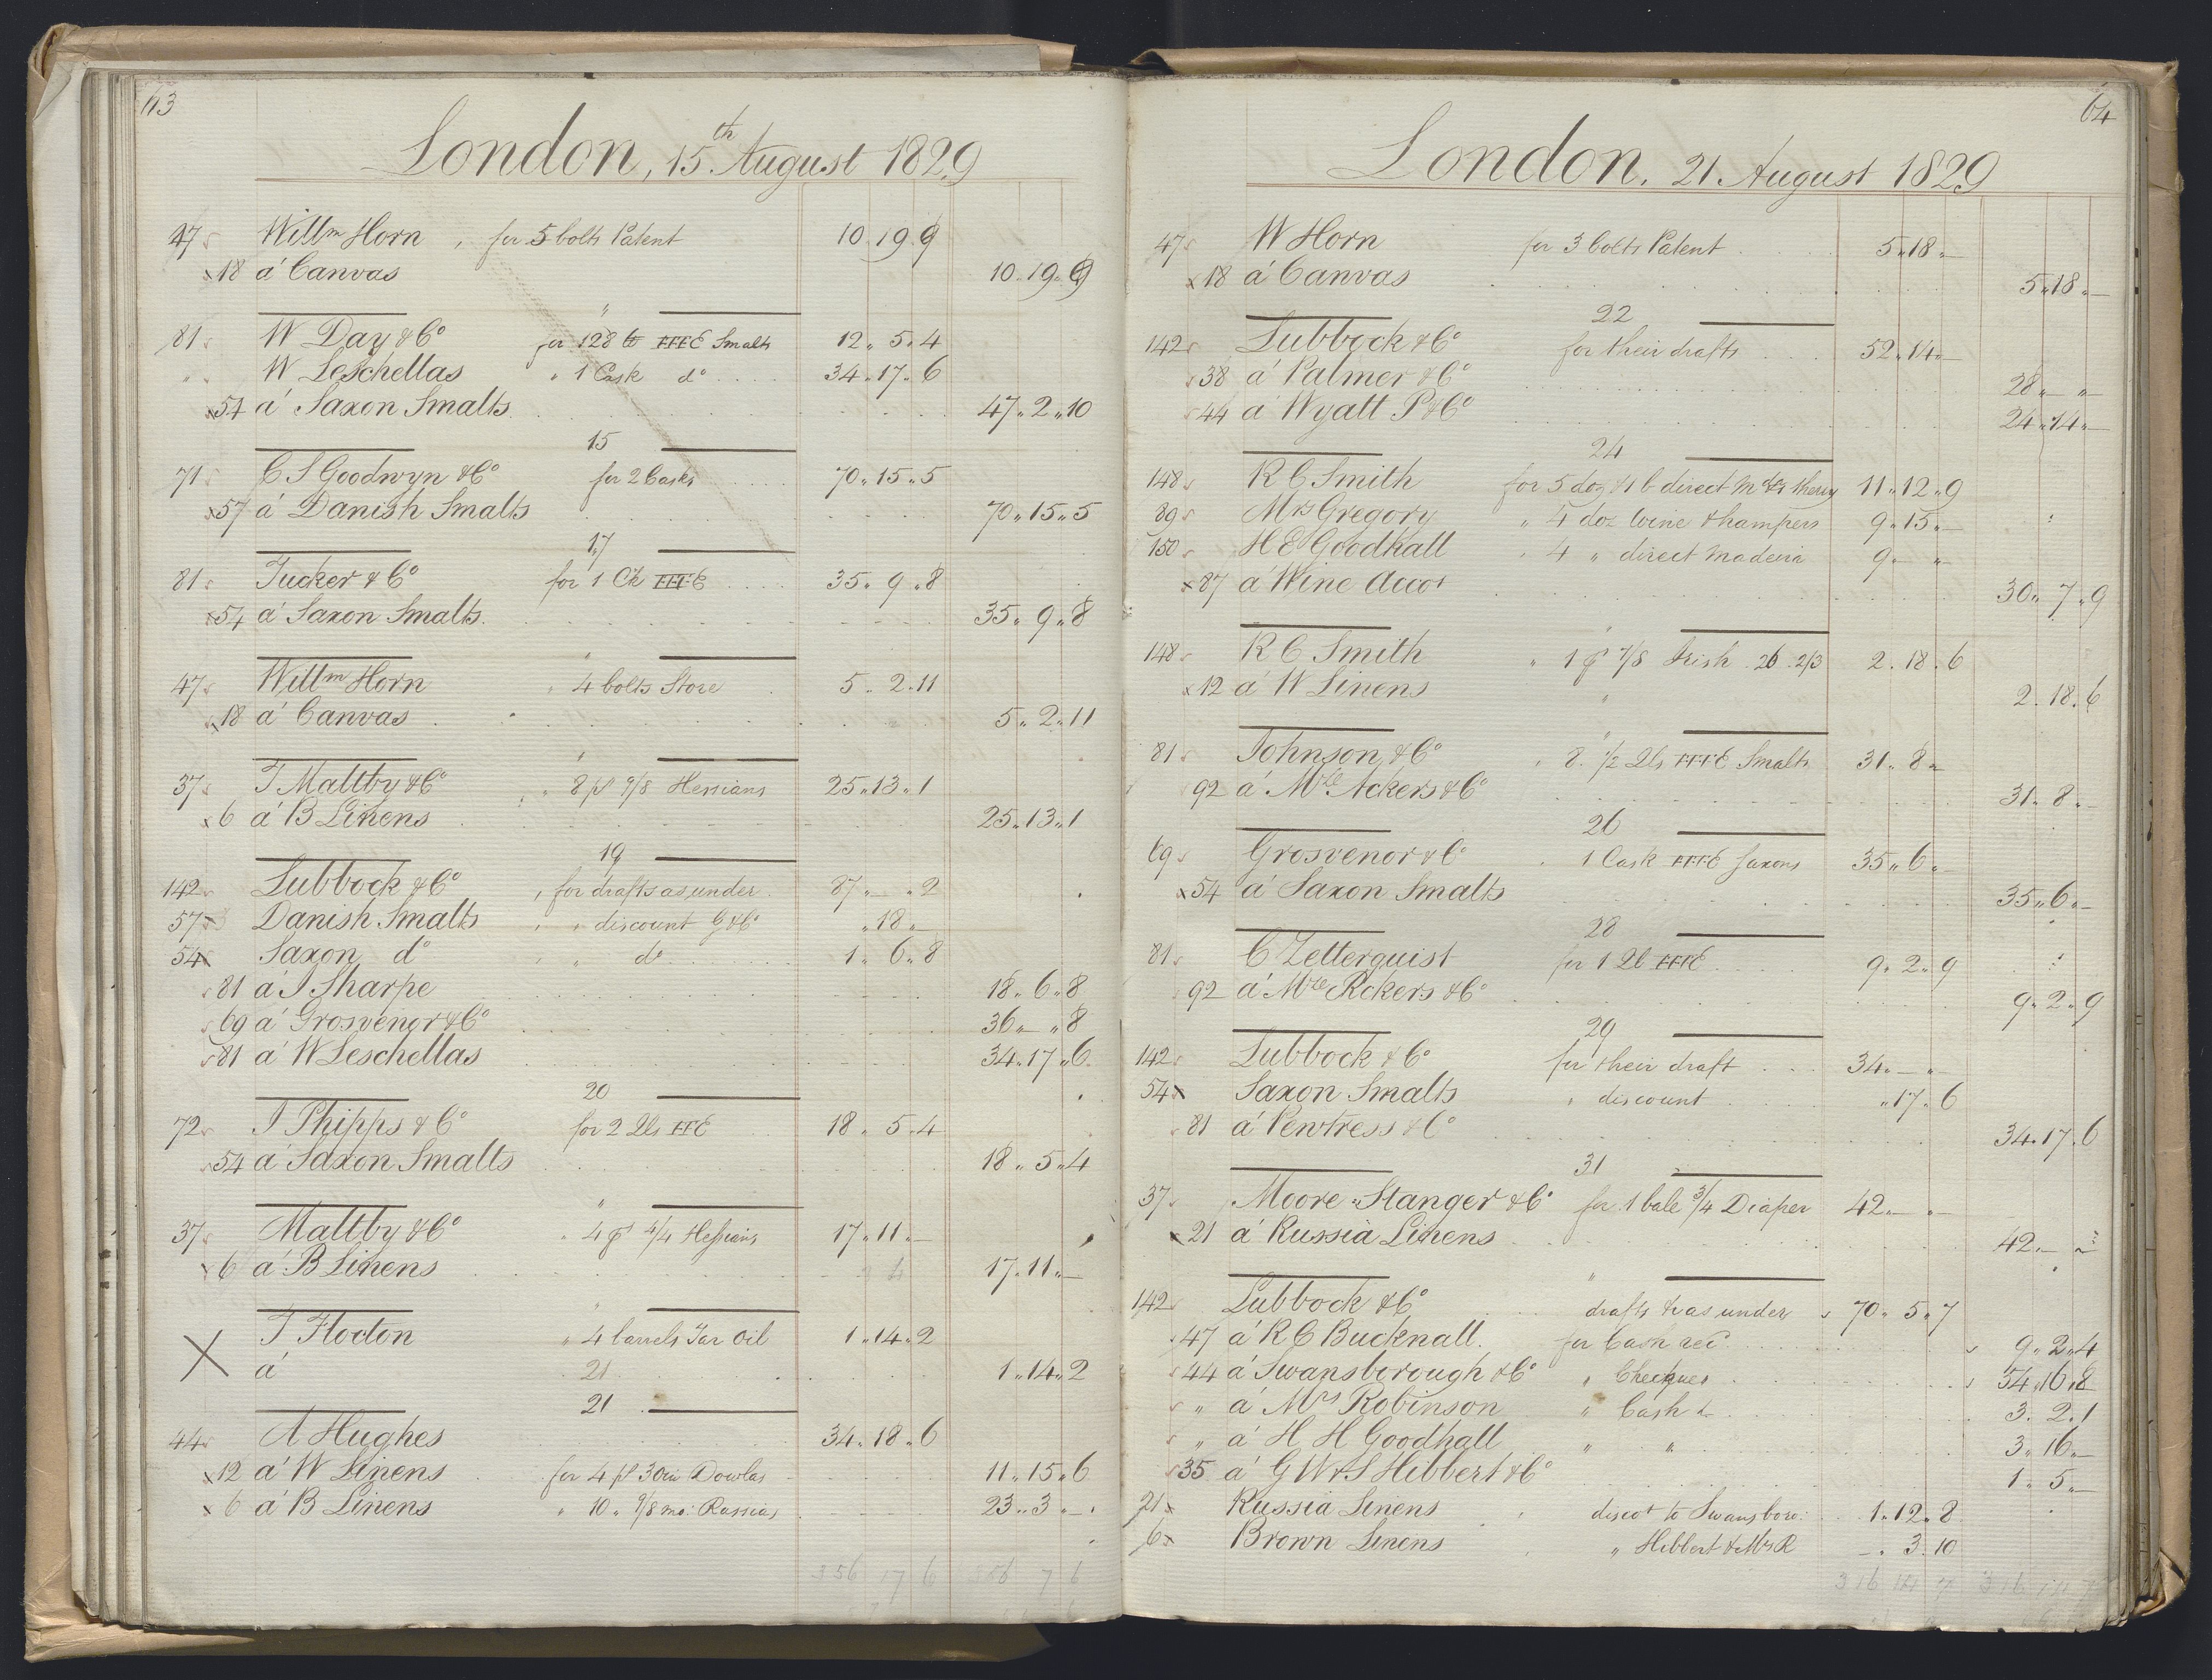 63
London, 15th August 1829
47 Willm Horn, for 5 bolts Patent 10 19 9
18 á Canvas 10 19 9
"
81 W Day & Co for 128 lb FFFE Smalts 12 5 4
" W Leschellas " 1 Cask do 34 17 6
54 á Saxon Smalts 47 2 10
15
71 C S Goodwyn & Co for 2 Casks 70 15 5
57 á Danish Smalts 70 15 5
17
81 Tucker & Co for 1 Ck FFFE 35 9 8
54 á Saxon Smalts 35 9 8
"
47 Willm Horn " 4 bolts Store 5 2 11
18 á Canvas 5 2 11
"
37 T Maltby & Co " 8 ps 9/8 Hessians 25 13 1
6 á B Linens 25 13 1
19
142 Lubbock & Co for drafts as under 87 – 2
57 Danish Smalts " discount G & Co " 18 –
54 Saxon do " do 1 6 8
81 á J Sharpe 18 6 8
69 á Grosvenor & Co 36 – 8
81 á W Leschellas 34 17 6
20
72 J Phipps & Co for 2 Qls FFE 18 5 4
54 á Saxon Smalts 18 5 4
"
37 Maltby & Co " 4 ps 4/4 Hessians 17 11 –
6 á B Linens 17 11 –
"
X T Flocton " 4 barrels Tar Oil 1 14 2
á 21 1 14 2
21
44 A Hughes 34 18 6
12 á W Linens for 4 ps 30in Dowlas 11 15 6
6 á B Linens " 10 " 9/8 mo: Russias 23 3 –
356 17 6 356 7 6
64
London. 21 August 1829
47 W Horn for 3 bolts Patent 5 18 –
18 á Canvas 5 18 –
22
142 Lubbock & Co for their drafts 52 14 –
38 á Palmer & Co 28 – –
44 á Wyatt P & Co 24 14 –
24
148 R C Smith for 5 doz & 1 b direct M & Sherry 11 12 9
89 Mrs Gregory " 4 doz Wine & hampers 9 15 –
150 H E Goodhall " 4 " direct Madeira 9 – –
87 á Wine Accot 30 7 9
"
148 R C Smith " 1 ps 7/8 Irish 26 2/3 2 18 6
12 á W Linens " 2 18 6
"
81 Johnson & Co " 8 1/2 Qls FFFE Smalts 31 8 –
92 á Mce Ackers & Co 31 8 –
26
69 Grosvenor & Co " 1 Cask FFFE Saxons 35 6 –
54 á Saxon Smalts 35 6 –
28
81 C Zetterquist for 1 Ql FFFE 9 2 9
92 á Mce Ackers & Co 9 2 9
29
142 Lubbock & Co for their draft 34 – –
54 Saxon Smalts " discount " 17 6
81 á Pewtress & Co 34 17 6
31
37 Moore Stanger & Co for 1 bale 3/4 Diaper 42 – –
21 á Russia Linens 42 – –
"
142 Lubbock & Co drafts &c as under 70 5 7
47 á R C Bucknall for Cash recd 9 2 4
44 á Swansborough & Co " Cheques 54 16 8
" á Mrs Robinson " Cash 3 2 1
" á H H Goodhall " " 3 16 –
35 á G W & S Hibbert & Co 1 5 –
21 Russia Linens discot to Swansboro: 1 12 8
6 Brown Linens " Hibbert & Mrs R – 3 10
316 14 7 316 14 7